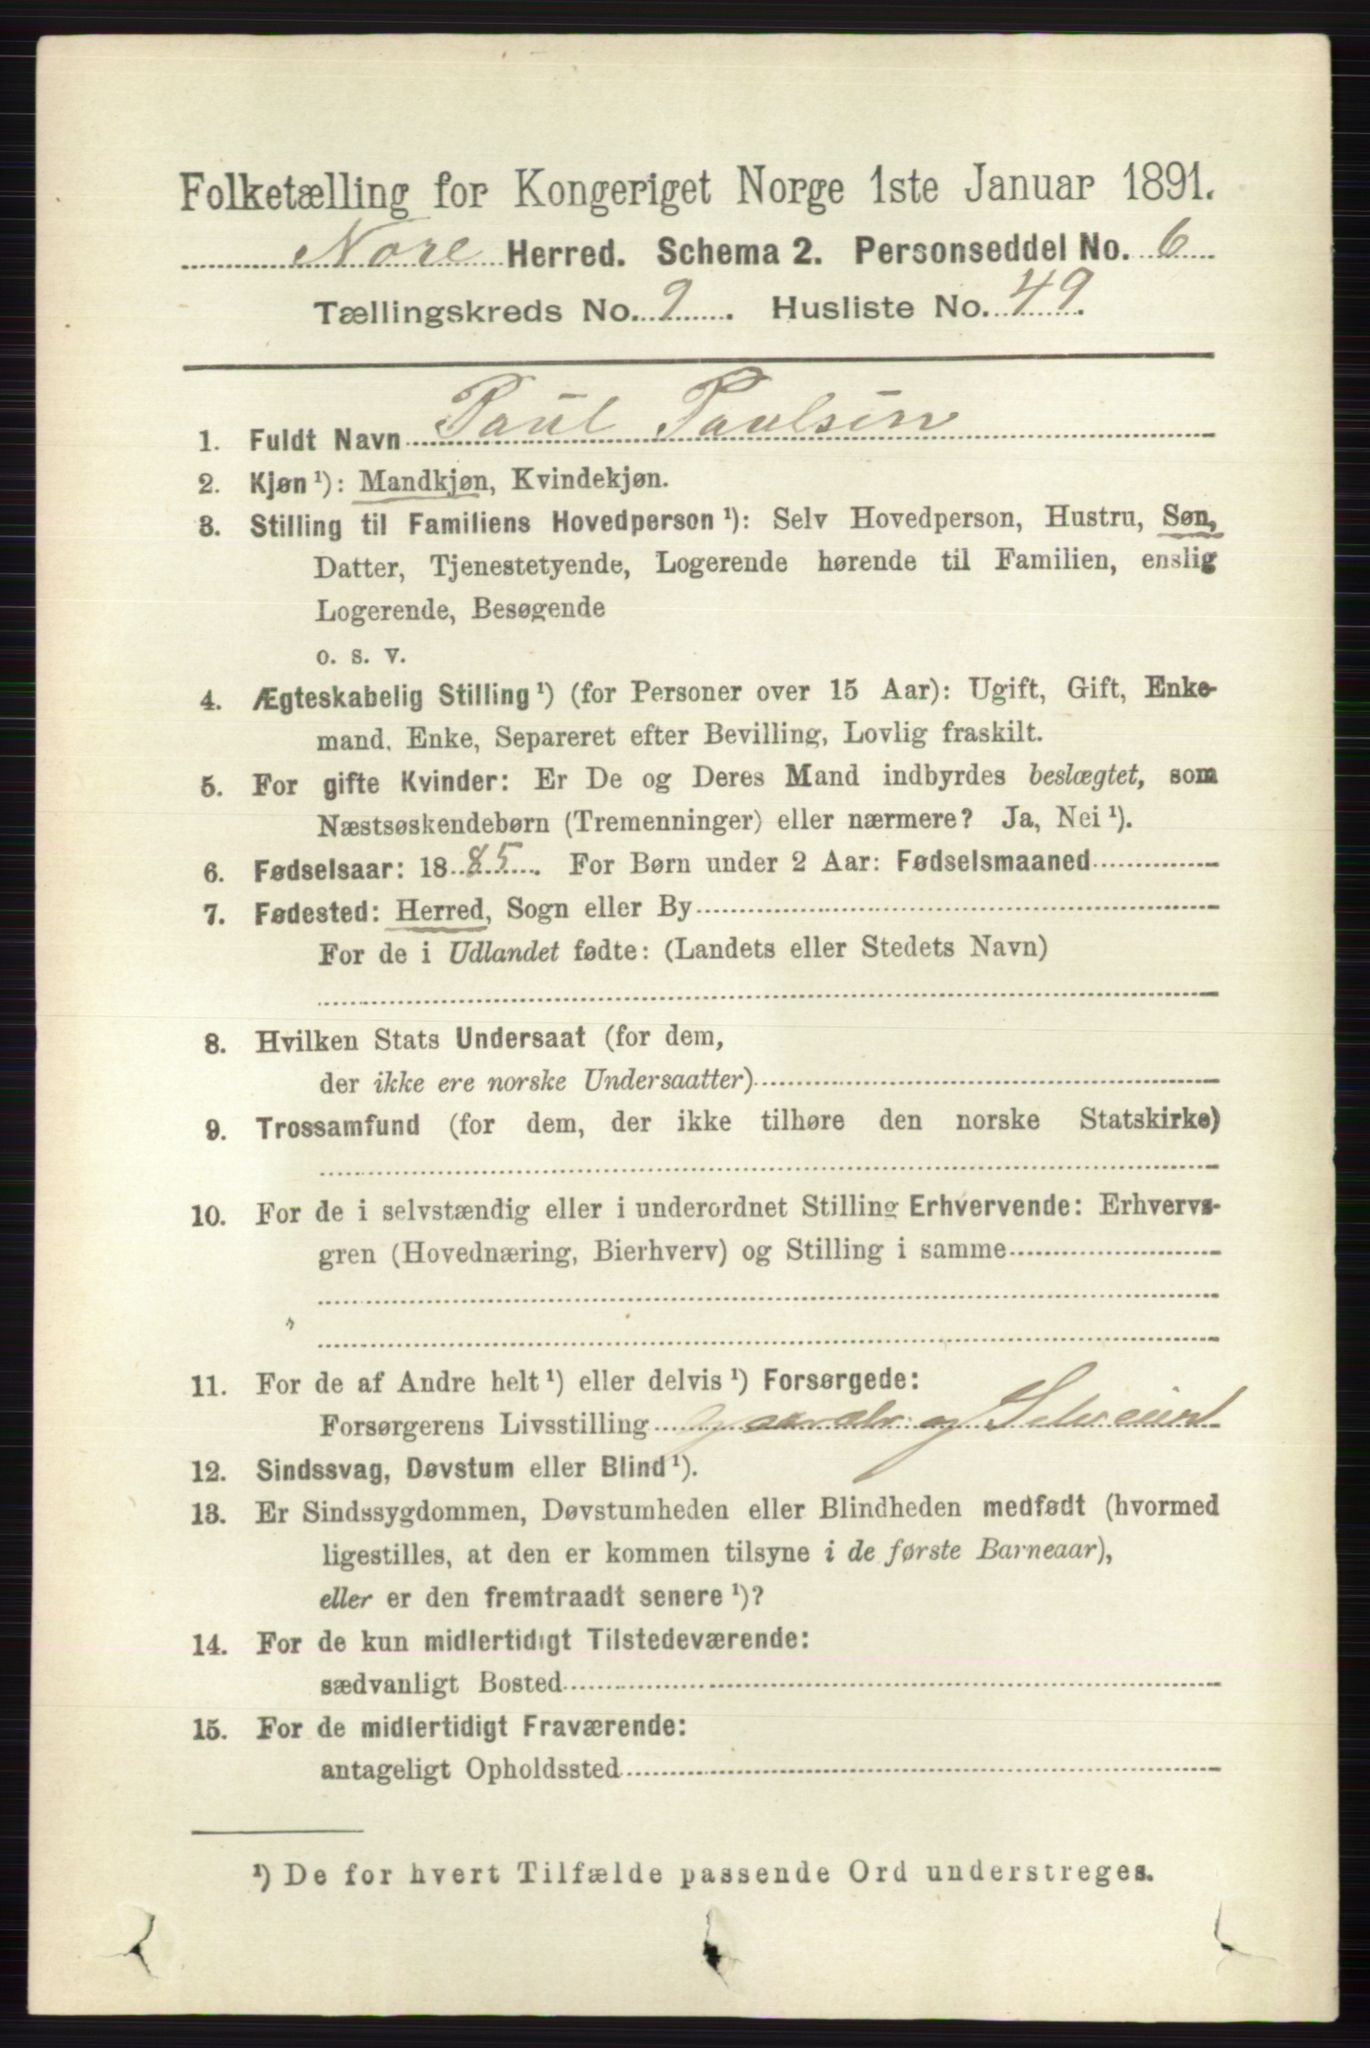 Folketælling for Kongeriget Norge 1ste Januar 1891.
Nore Herred. Schema 2. Personseddel No. 6
Tællingskreds No. 9. Husliste No. 49.
1. Fuldt Navn Paul Paulsen
2. Kjøn ¹): Mandkjøn, Kvindekjøn.
3. Stilling til Familiens Hovedperson ¹): Selv Hovedperson, Hustru, Søn,
Datter, Tjenestetyende, Logerende hørende til Familien, enslig
Logerende, Besøgende
o. s. v.
4. Ægteskabelig Stilling ¹) (for Personer over 15 Aar): Ugift, Gift, Enke-
mand, Enke, Separeret efter Bevilling, Lovlig fraskilt.
5. For gifte Kvinder: Er De og Deres Mand indbyrdes beslægtet, som
Næstsøskendebørn (Tremenninger) eller nærmere? Ja, Nei ¹).
6. Fødselsaar: 1885. For Børn under 2 Aar: Fødselsmaaned
7. Fødested: Herred, Sogn eller By
For de i Udlandet fødte: (Landets eller Stedets Navn)
8. Hvilken Stats Undersaat (for dem,
der ikke ere norske Undersaatter)
9. Trossamfund (for dem, der ikke tilhøre den norske Statskirke)
10. For de i selvstændig eller i underordnet Stilling Erhvervende: Erhvervs-
gren (Hovednæring, Bierhverv) og Stilling i samme
11. For de af Andre helt ¹) eller delvis ¹) Forsørgede:
Forsørgerens Livsstilling og Selveier
12. Sindssvag, Døvstum eller Blind ¹).
13. Er Sindssygdommen, Døvstumheden eller Blindheden medfødt (hvormed
ligestilles, at den er kommen tilsyne i de første Barneaar),
eller er den fremtraadt senere ¹)?
14. For de kun midlertidigt Tilstedeværende:
sædvanligt Bosted
15. For de midlertidigt Fraværende:
antageligt Opholdssted
¹) De for hvert Tilfælde passende Ord understreges.